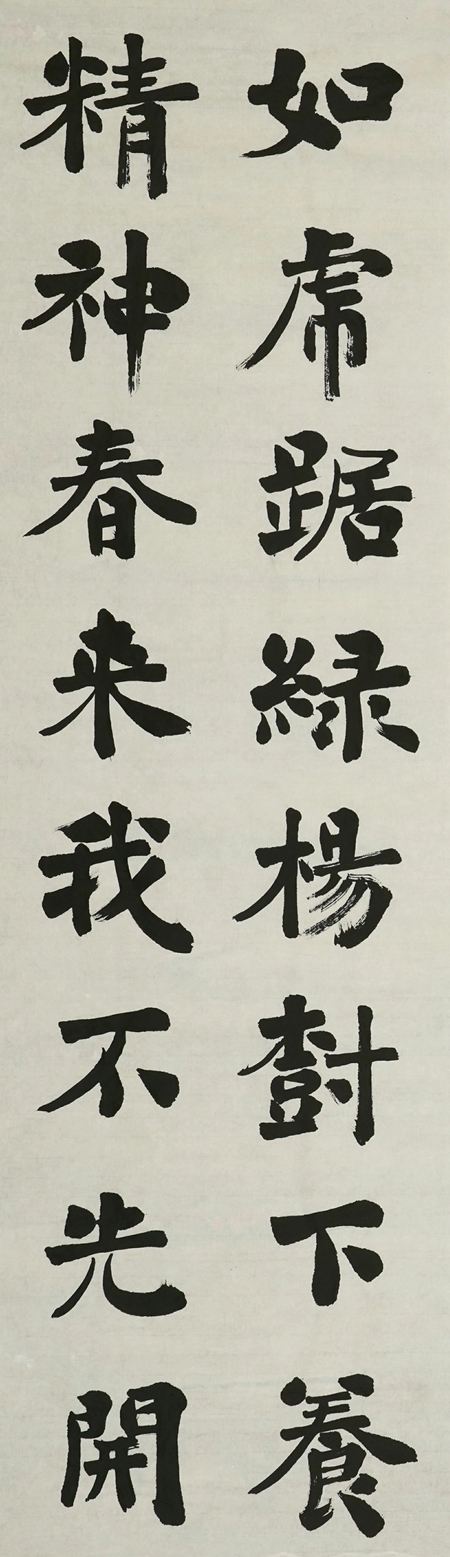 如虎踞綠楊樹下養
精神春来我不先開